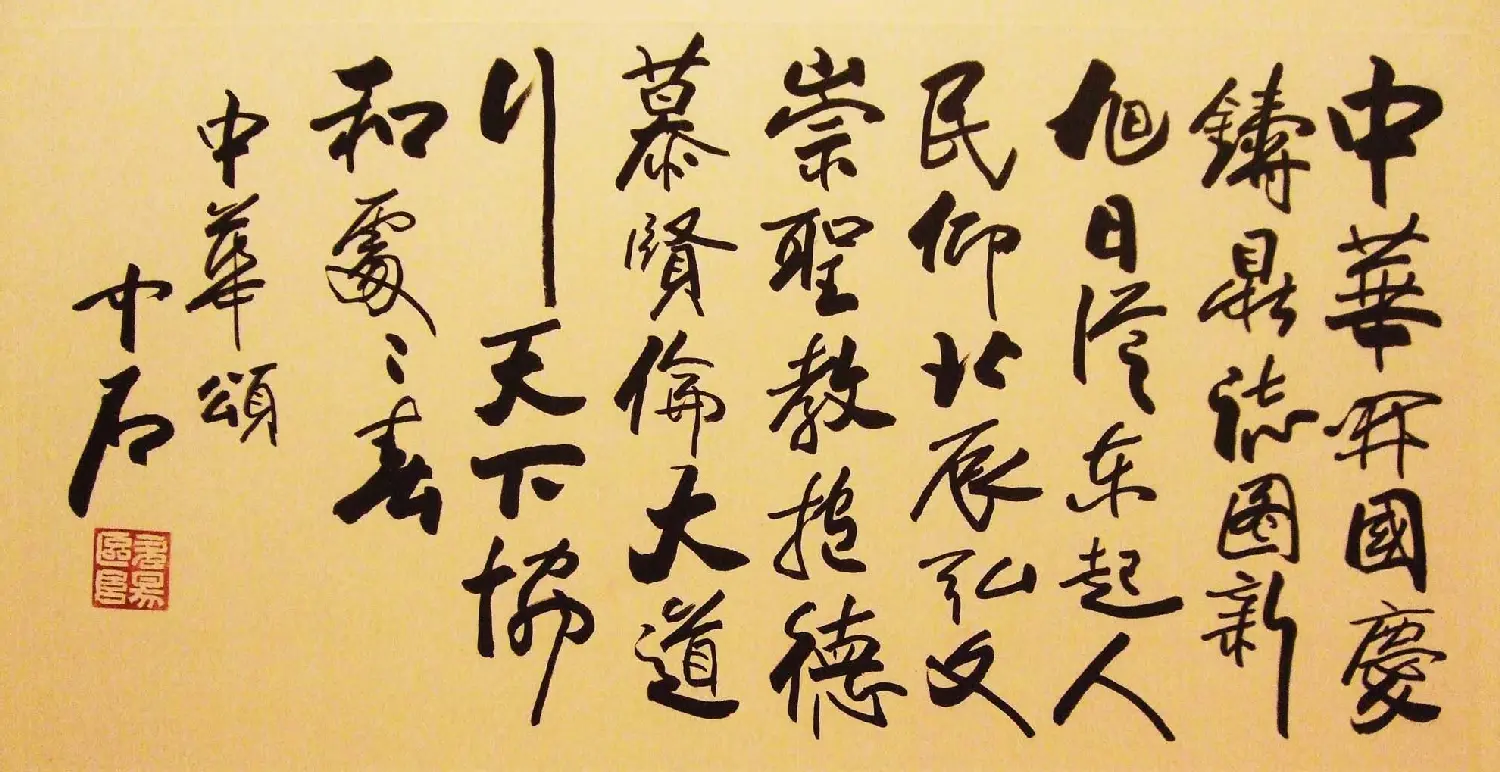 中華开國慶
鑄鼎誌圖新
旭日從东起人
民仰北辰弘文
崇聖教抱德
慕賢倫大道
行天下協
和處々春
中華頌
中石